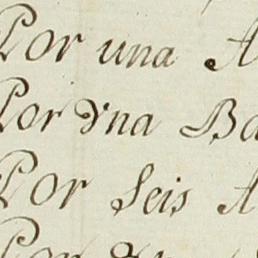 Por una A
Por d'na Ba
Por Seis A
Por